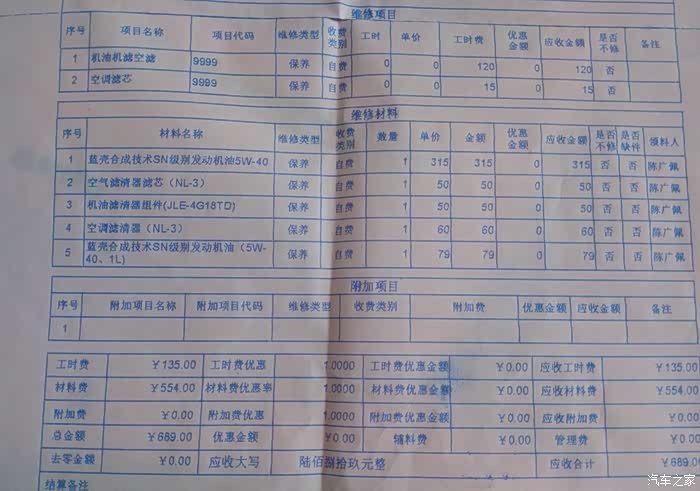 维修项目
序号 项目名称 项目代码 维修类型 收费类别 工时 单价 工时费 优惠金额 应收金额 是否不修 备注
1 机油机滤空滤 9999 保养 自费 0 0 120 0 120 否
2 空调滤芯 9999 保养 自费 0 0 15 0 15 否
维修材料
序号 材料名称 维修类型 收费类别 数量 单价 金额 优惠金额 应收金额 是否不修 是否缺件 领料人
1 蓝壳合成技术SN级别发动机油5W-40 保养 自费 1 315 315 0 315 否 否 陈广佩
2 空气滤清器滤芯（NL-3） 保养 自费 1 50 50 0 50 否 否 陈广佩
3 机油滤清器组件(JLE-4G18TD) 保养 自费 1 50 50 0 50 否 否 陈广佩
4 空调滤清器（NL-3） 保养 自费 1 60 60 0 60 否 否 陈广佩
5 蓝壳合成技术SN级别发动机油（5W-40、1L) 保养 自费 1 79 79 0 79 否 否 陈广佩
附加项目
序号 附加项目名称 附加项目代码 维修类型 收费类别 附加费 优惠金额 应收金额 备注
1
工时费 ￥135.00 工时费优惠 1.0000 工时费优惠金额 ￥0.00 应收工时费 ￥135.00
材料费 ￥554.00 材料费优惠率 1.0000 材料费优惠金额 ￥0.00 应收材料费 ￥554.00
附加费 ￥0.00 附加费优惠 1.0000 附加费优惠金额 ￥0.00 应收附加费 ￥0.00
总金额 ￥689.00 优惠金额 ￥0.00 辅料费 ￥0.00 管理费 ￥0.00
去零金额 ￥0.00 应收大写 陆佰捌拾玖元整 应收合计 ￥689.00
结算备注
汽车之家